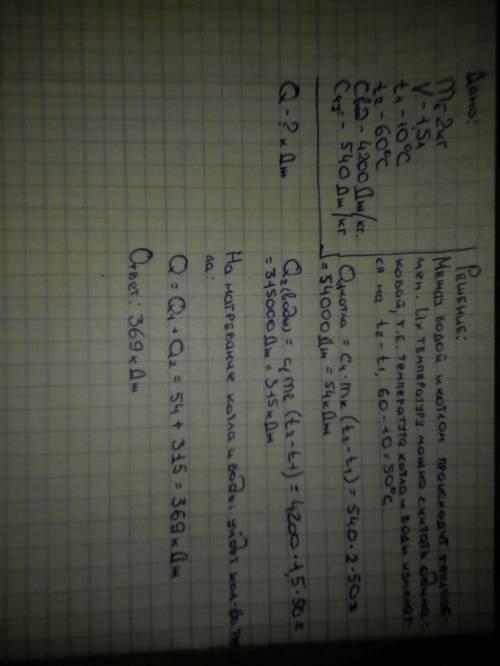 Дано:
m - 2 кг
V - 1,5 л
t₁ - 10°C
t₂ - 60°C
Cвод - 4200 Дж/кг.
Cчуг - 540 Дж/кг
Q - ? кДж
Решение:
Между водой и котлом происходит теплооб-
мен. Их температуру можно считать одина-
ковой, т.е. температура котла и воды изменит-
ся на t₂ - t₁, 60 - 10 = 50°C
Q₁котла = C₁ · mк (t₂ - t₁) = 540 · 2 · 50 =
= 54000 Дж = 54 кДж
Q₂(воды) = c₁ mв (t₂ - t₁) = 4200 · 1,5 · 50 =
= 315000 Дж = 315 кДж
На нагревание котла и воды уйдёт кол-во теп-
ла:
Q = Q₁ + Q₂ = 54 + 315 = 369 кДж
Ответ: 369 кДж